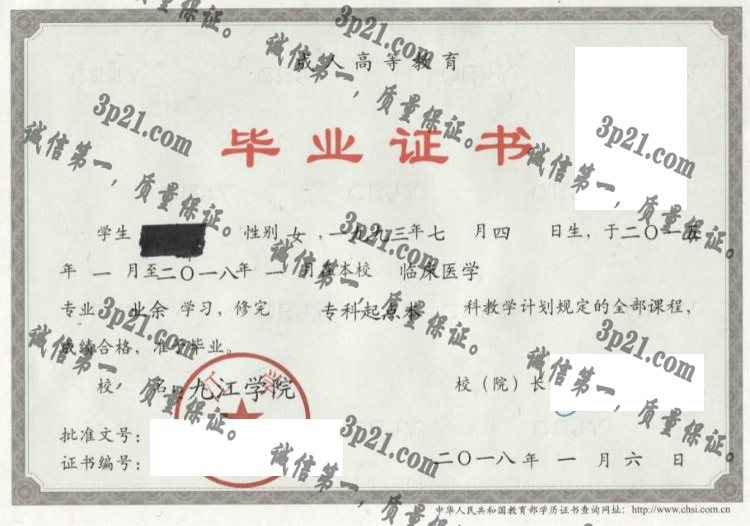 成人高等教育
毕业证书
学生 性别 女 ,一九九三年七 月四 日生,于二〇一五
年 一 月至二〇一八年 一 月在本校 临床医学
专业 业余 学习,修完 专科起点本 科教学计划规定的全部课程,
成绩合格,准予毕业。
校 名: 九江学院 校(院)长
批准文号:
证书编号: 二〇一八年 一 月 六 日
中华人民共和国教育部学历证书查询网址: http://www.chsi.com.cn
3p21.com
诚信第一,质量保证。
3p21.com
诚信第一,质量保证。
3p21.com
诚信第一,质量保证。
3p21.com
诚信第一,质量保证。
3p21.com
诚信第一,质量保证。
3p21.com
诚信第一,质量保证。
3p21.com
诚信第一,质量保证。